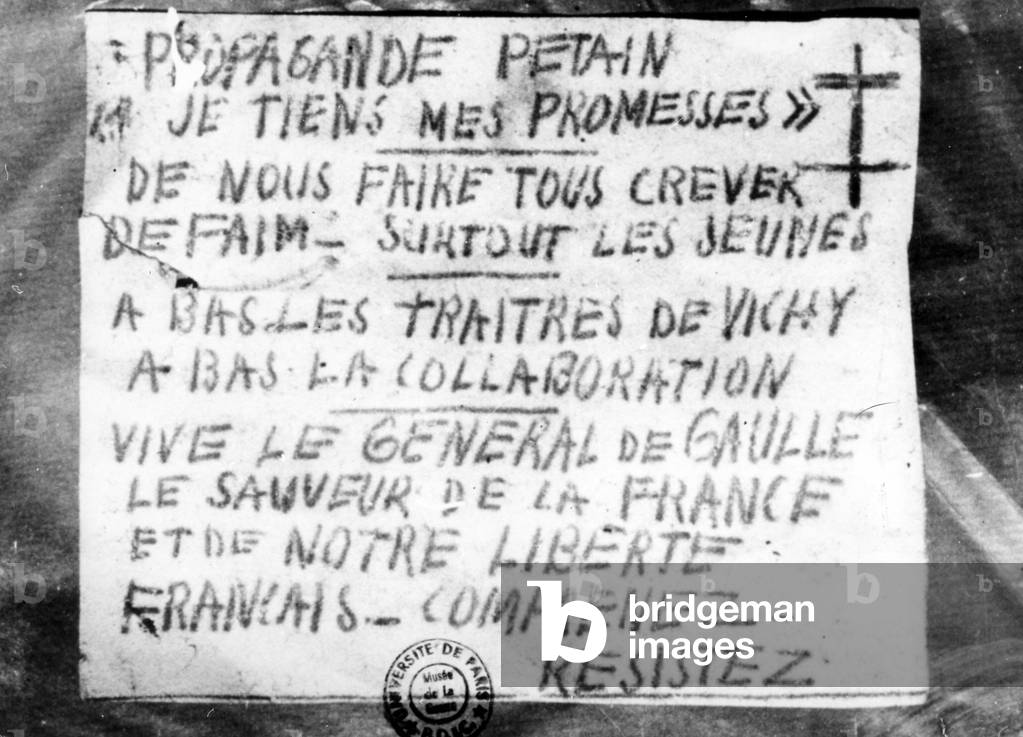 PROPAGANDE PETAIN
" JE TIENS MES PROMESSES »
DE NOUS FAIRE TOUS CREVER
DE FAIM - SURTOUT LES JEUNES
A BAS LES TRAITRES DE VICHY
A BAS LA COLLABORATION
VIVE LE GENERAL DE GAULLE
LE SAUVEUR DE LA FRANCE
ET DE NOTRE LIBERTE
FRANCAIS -
RESISTEZ.
UNIVERSITE DE PARIS
Musée
de la
bridgeman
images